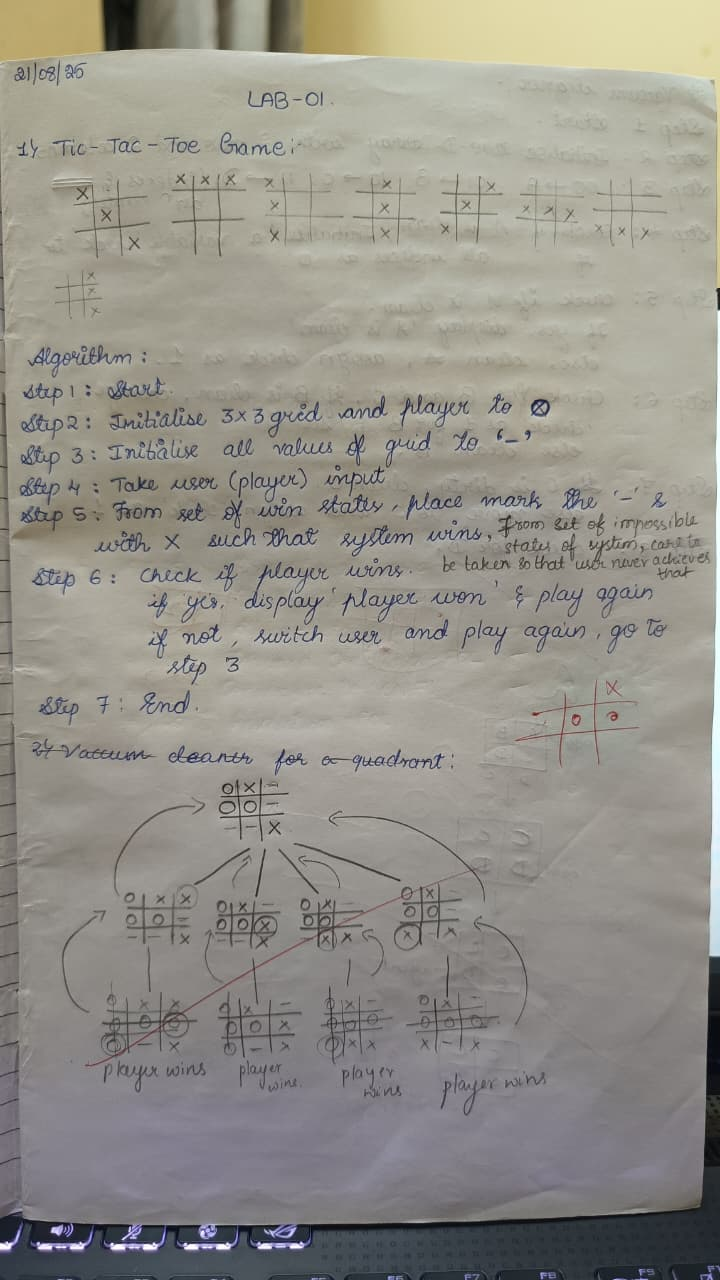 21/08/25
LAB-01.
1) Tic-Tac-Toe Game:
X X X X X X X X
X X X X X X X X
X X X X X X X X
Algorithm:
Step 1: Start.
Step 2: Initialise 3x3 grid and player to X
Step 3: Initialise all values of grid to '-'
Step 4: Take user (player) input
Step 5: From set of win states, place mark the '-' &
with X such that system wins, From set of impossible
states of system, care to
be taken so that user never achieves
that
Step 6: Check if player wins.
if yes, display 'player won' & play again
if not, switch user and play again, go to
step 3
Step 7: End.
X
O O
2) Vaccum cleaner for a quadrant:
O X -
O O -
- - X
O X X O X - O X - O X -
O O - O O X O O - O O -
- - X - - X - X X X - X
O X X O X - O X - O X -
O O O O O X O O O O O O
O - X O - X O X X X - X
player wins player wins. player wins player wins